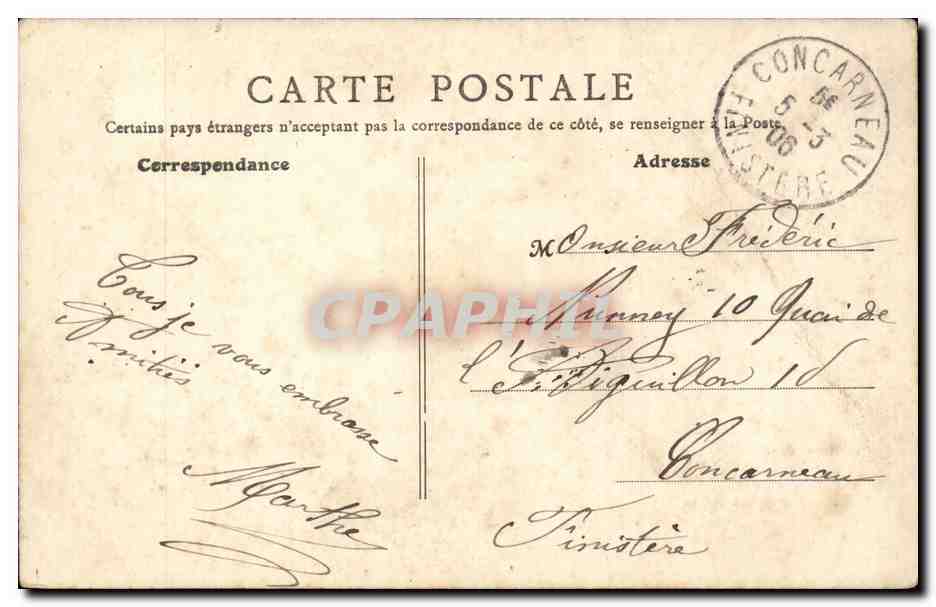 CARTE POSTALE
Certains pays étrangers n'acceptent pas la correspondance de ce côté, se renseigner à la Poste
Correspondance
Adresse
CONCARNEAU
5E
5 -3
06
FINISTÈRE
Tous je vous embrasse
Amitiés
Marthe
Monsieur Frédéric
10 Quai de
l'Aiguillon 1d
Concarneau
Finistère
CPAPHIL